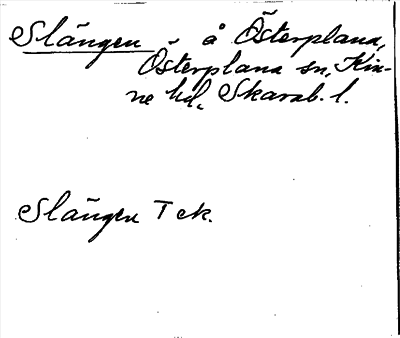 Slängen å Österplana,
Österplana sn, Kin-
ne hd, Skarab. l.
Slängen T ek.